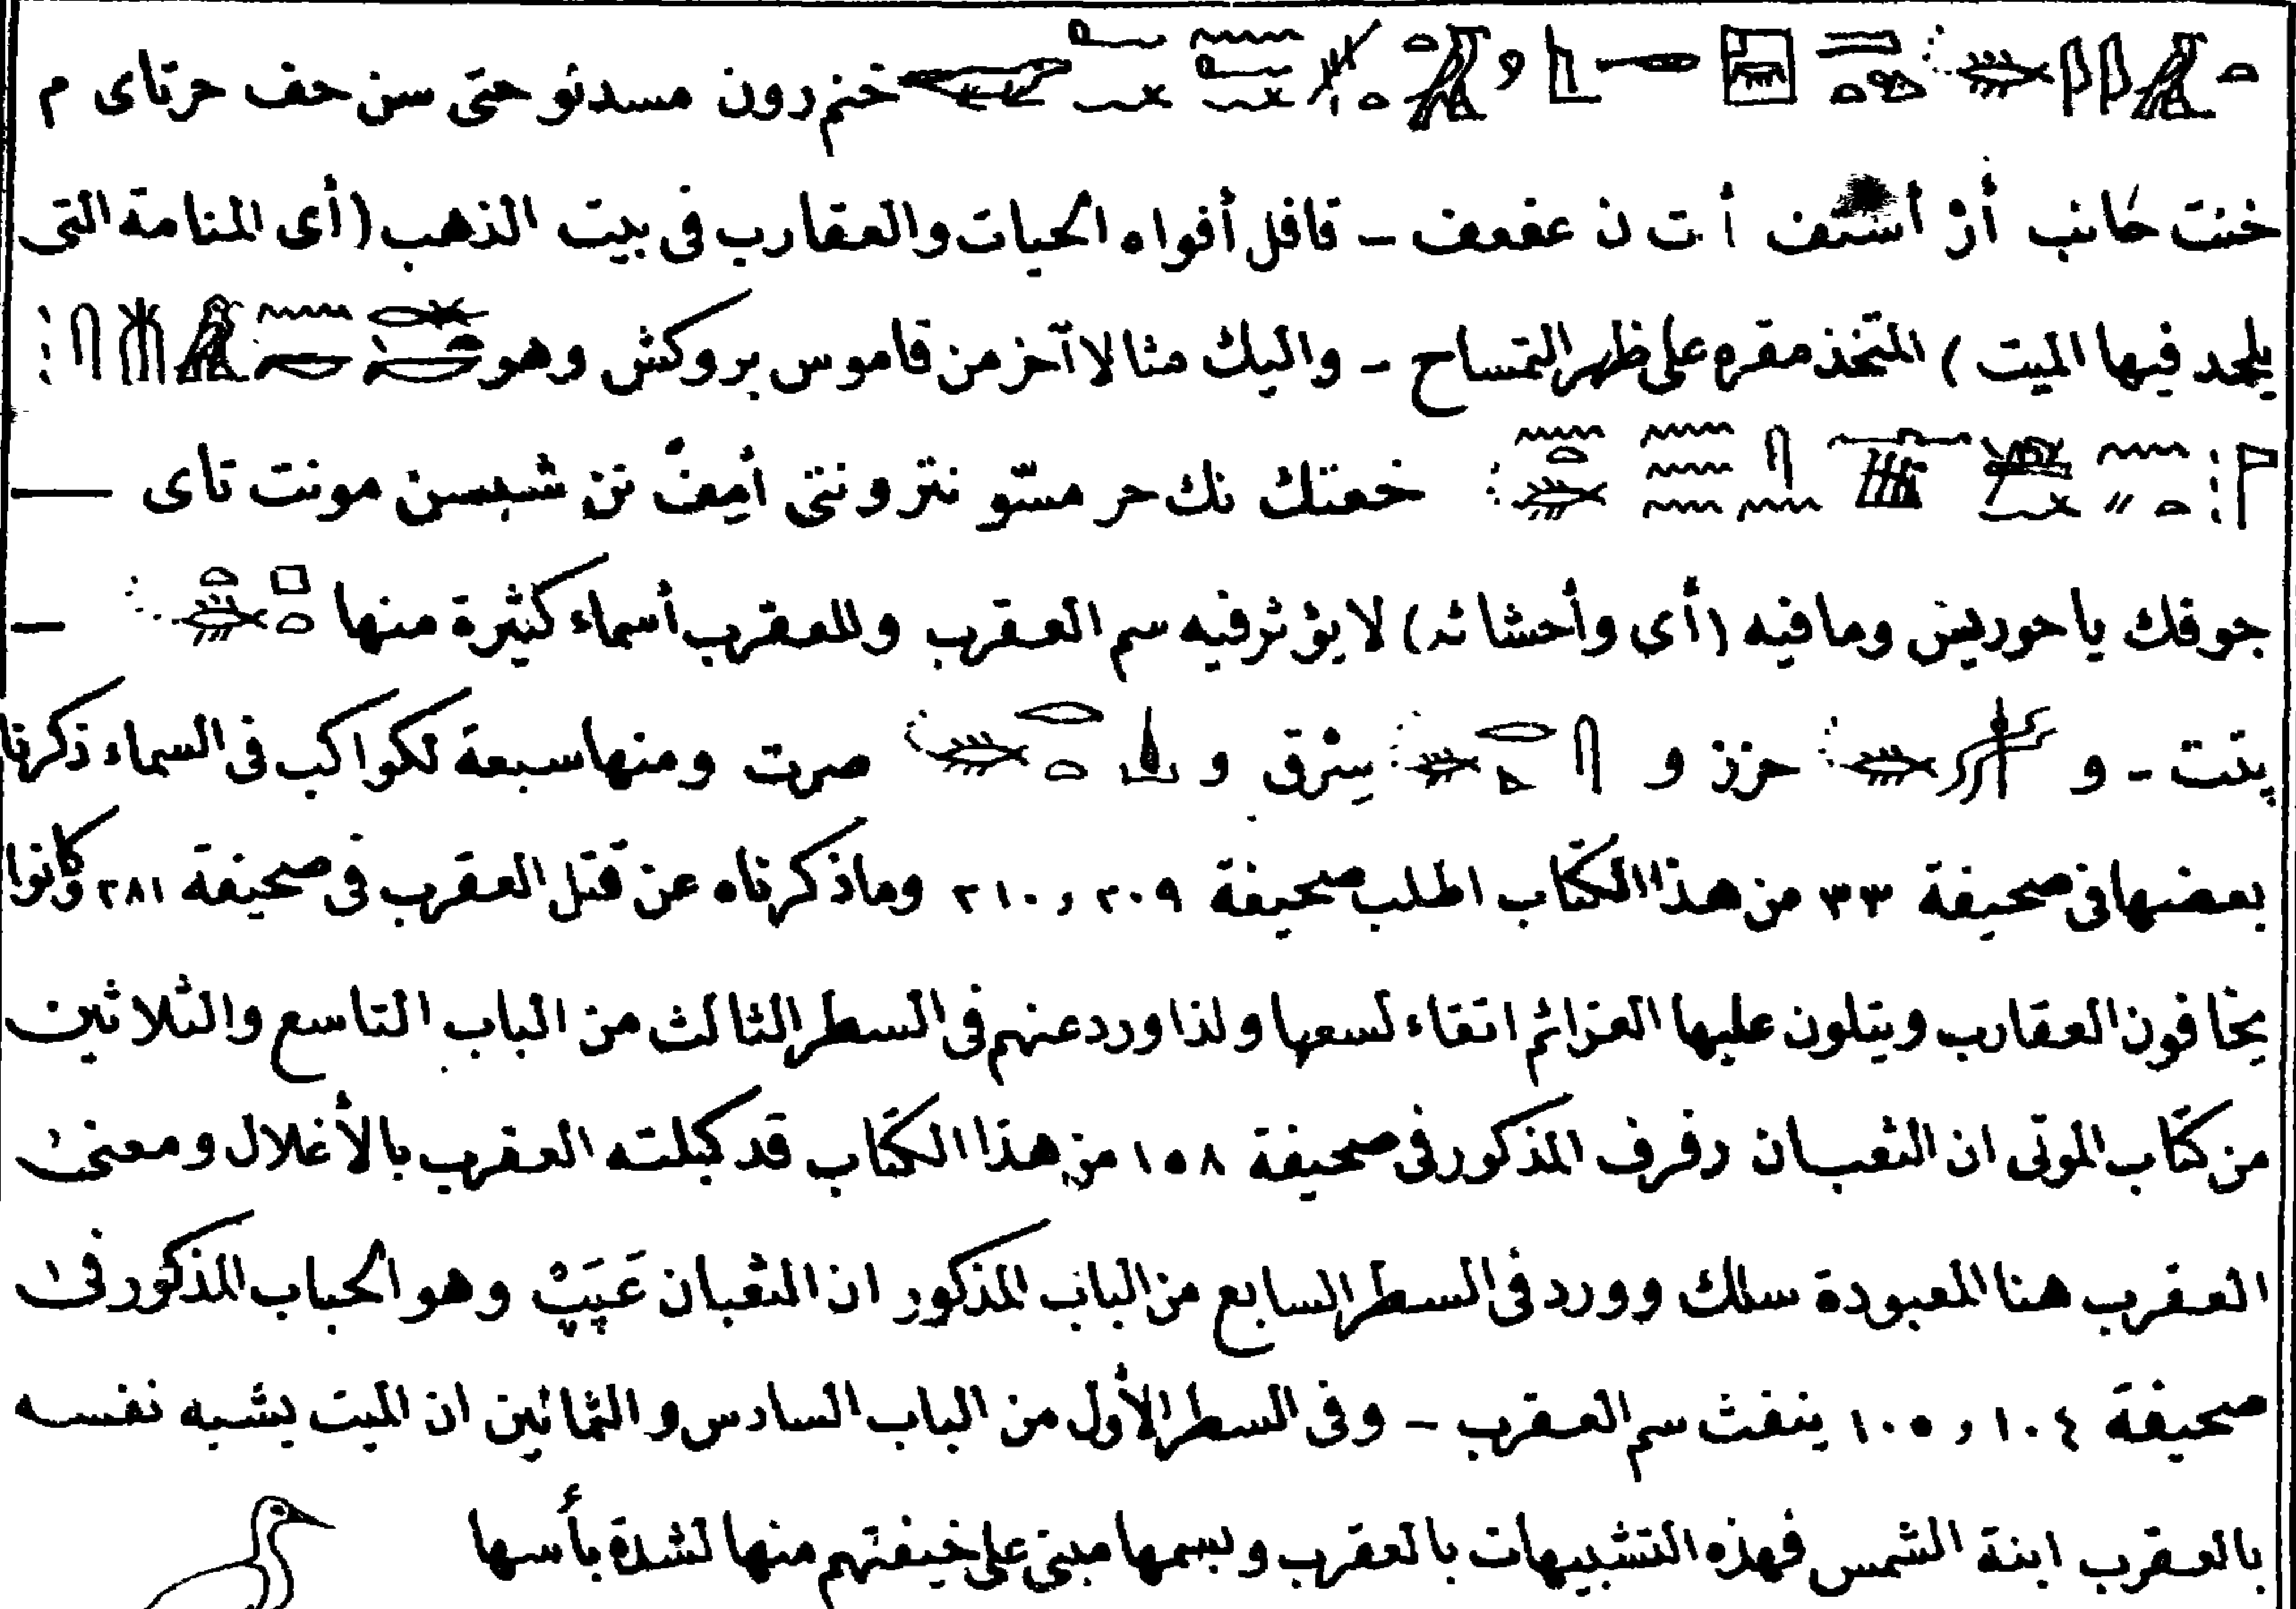 خنم رون مسدنو حتى سن حف حرتاى م
خنت حانب أز أستف أ ت ن عفعف - قافل أفواه الحيات والعقارب فى بيت الذهب (أى المنامة التى
يلحد فيها الميت) المتخذ مقره على ظهر التمساح - واليك مثالا آخر من قاموس بروكش وهو
خعتك نك حر مستو نترو نتى أمف تن شبسن مونت تاى —
جوفك ياحوريس ومافيه (أى وأحشائه) لايؤثر فيه سم العقرب وللعقرب أسماء كثيرة منها —
پتت - و حزز و سرق و صرت ومنها سبعة لكواكب فى السماء ذكرنا
بعضها فى صحيفة ٣٣ من هذا الكتاب اطلب صحيفة ٢٠٩ و ٢١٠ وماذكرناه عن قتل العقرب فى صحيفة ٢٨١ وكانوا
يخافون العقارب ويتلون عليها العزائم اتقاء لسعها ولذا ورد عنهم فى السطر الثالث من الباب التاسع والثلاثين
من كتاب الموتى ان الثعبان رفرف المذكور فى صحيفة ١٥٨ من هذا الكتاب قد كبلته العقرب بالأغلال ومعنى
العقرب هنا المعبودة سلك وورد فى السطر السابع من الباب المذكور ان الثعبان عَپَپْ وهو الحباب المذكور فى
صحيفة ١٠٤ و ١٠٥ ينفث سم العقرب - وفى السطر الأول من الباب السادس والثمانين ان الميت يشبه نفسه
بالعقرب ابنة الشمس فهذه التشبيهات بالعقرب وبسمها مبنى على خيفتهم منها لشدة بأسها